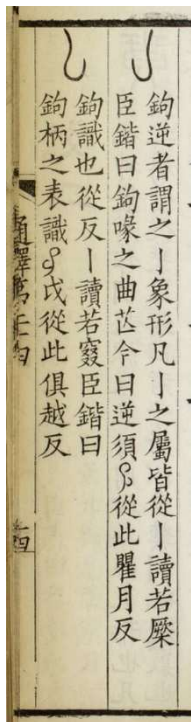 亅
鉤逆者謂之亅象形凡亅之屬皆從亅讀若橜
臣鍇曰鉤喙之曲芒今曰逆須從此瞿月反
𠄌
鉤識也從反亅讀若窡臣鍇曰
鉤柄之表識戉從此俱越反
通釋